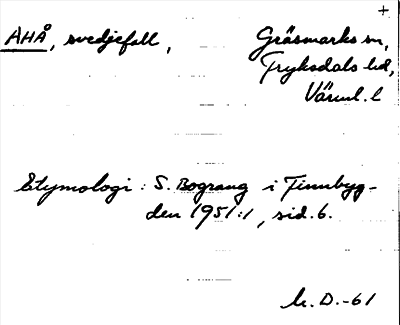 +
AHÅ, svedjefall, Gräsmarks sn,
Fryksdals hd,
Värml. l
Etymologi: S. Bograng i Finnbyg-
den 1951:1, sid. 6.
D.-61